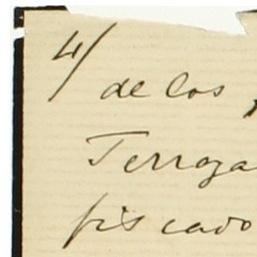 4/
de los
Terraza
fiscado